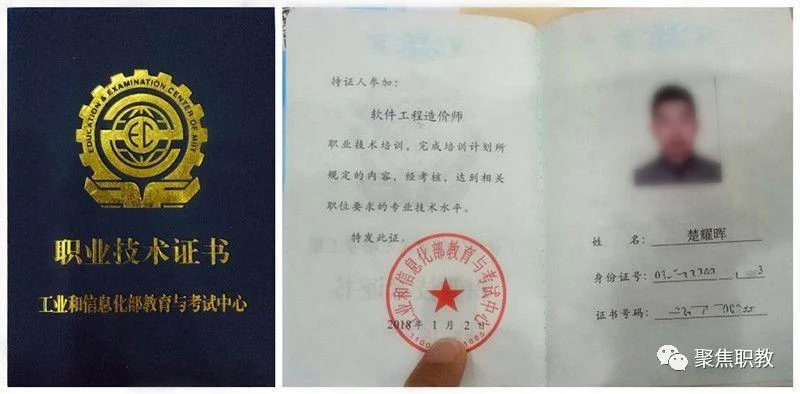 EDUCATION & EXAMINATION CENTER OF MIIT
EC
职业技术证书
工业和信息化部教育与考试中心
持证人参加:
软件工程造价师
职业技术培训，完成培训计划所
规定的内容，经考核，达到相关
职位要求的专业技术水平。
特发此证。
工业和信息化部教育与考试中心
2018年1月2日
姓 名: 楚耀晖
身份证号:
证书号码:
聚焦职教